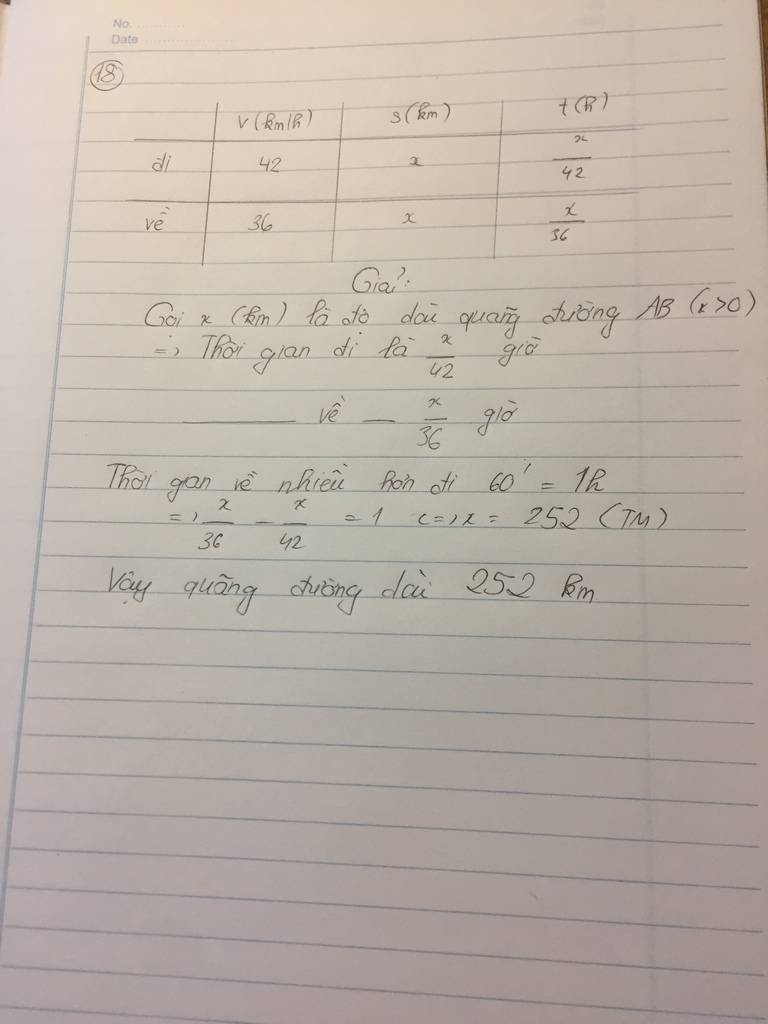 No. ............
Date ....................
18
v (km/h) s (km) t (h)
đi 42 x x/42
về 36 x x/36
Giải:
Gọi x (km) là độ dài quãng đường AB (x>0)
=> Thời gian đi là x/42 giờ
——— về — x/36 giờ
Thời gian về nhiều hơn đi 60' = 1h
=> x/36 - x/42 = 1 <=> x = 252 (TM)
Vậy quãng đường dài 252 km